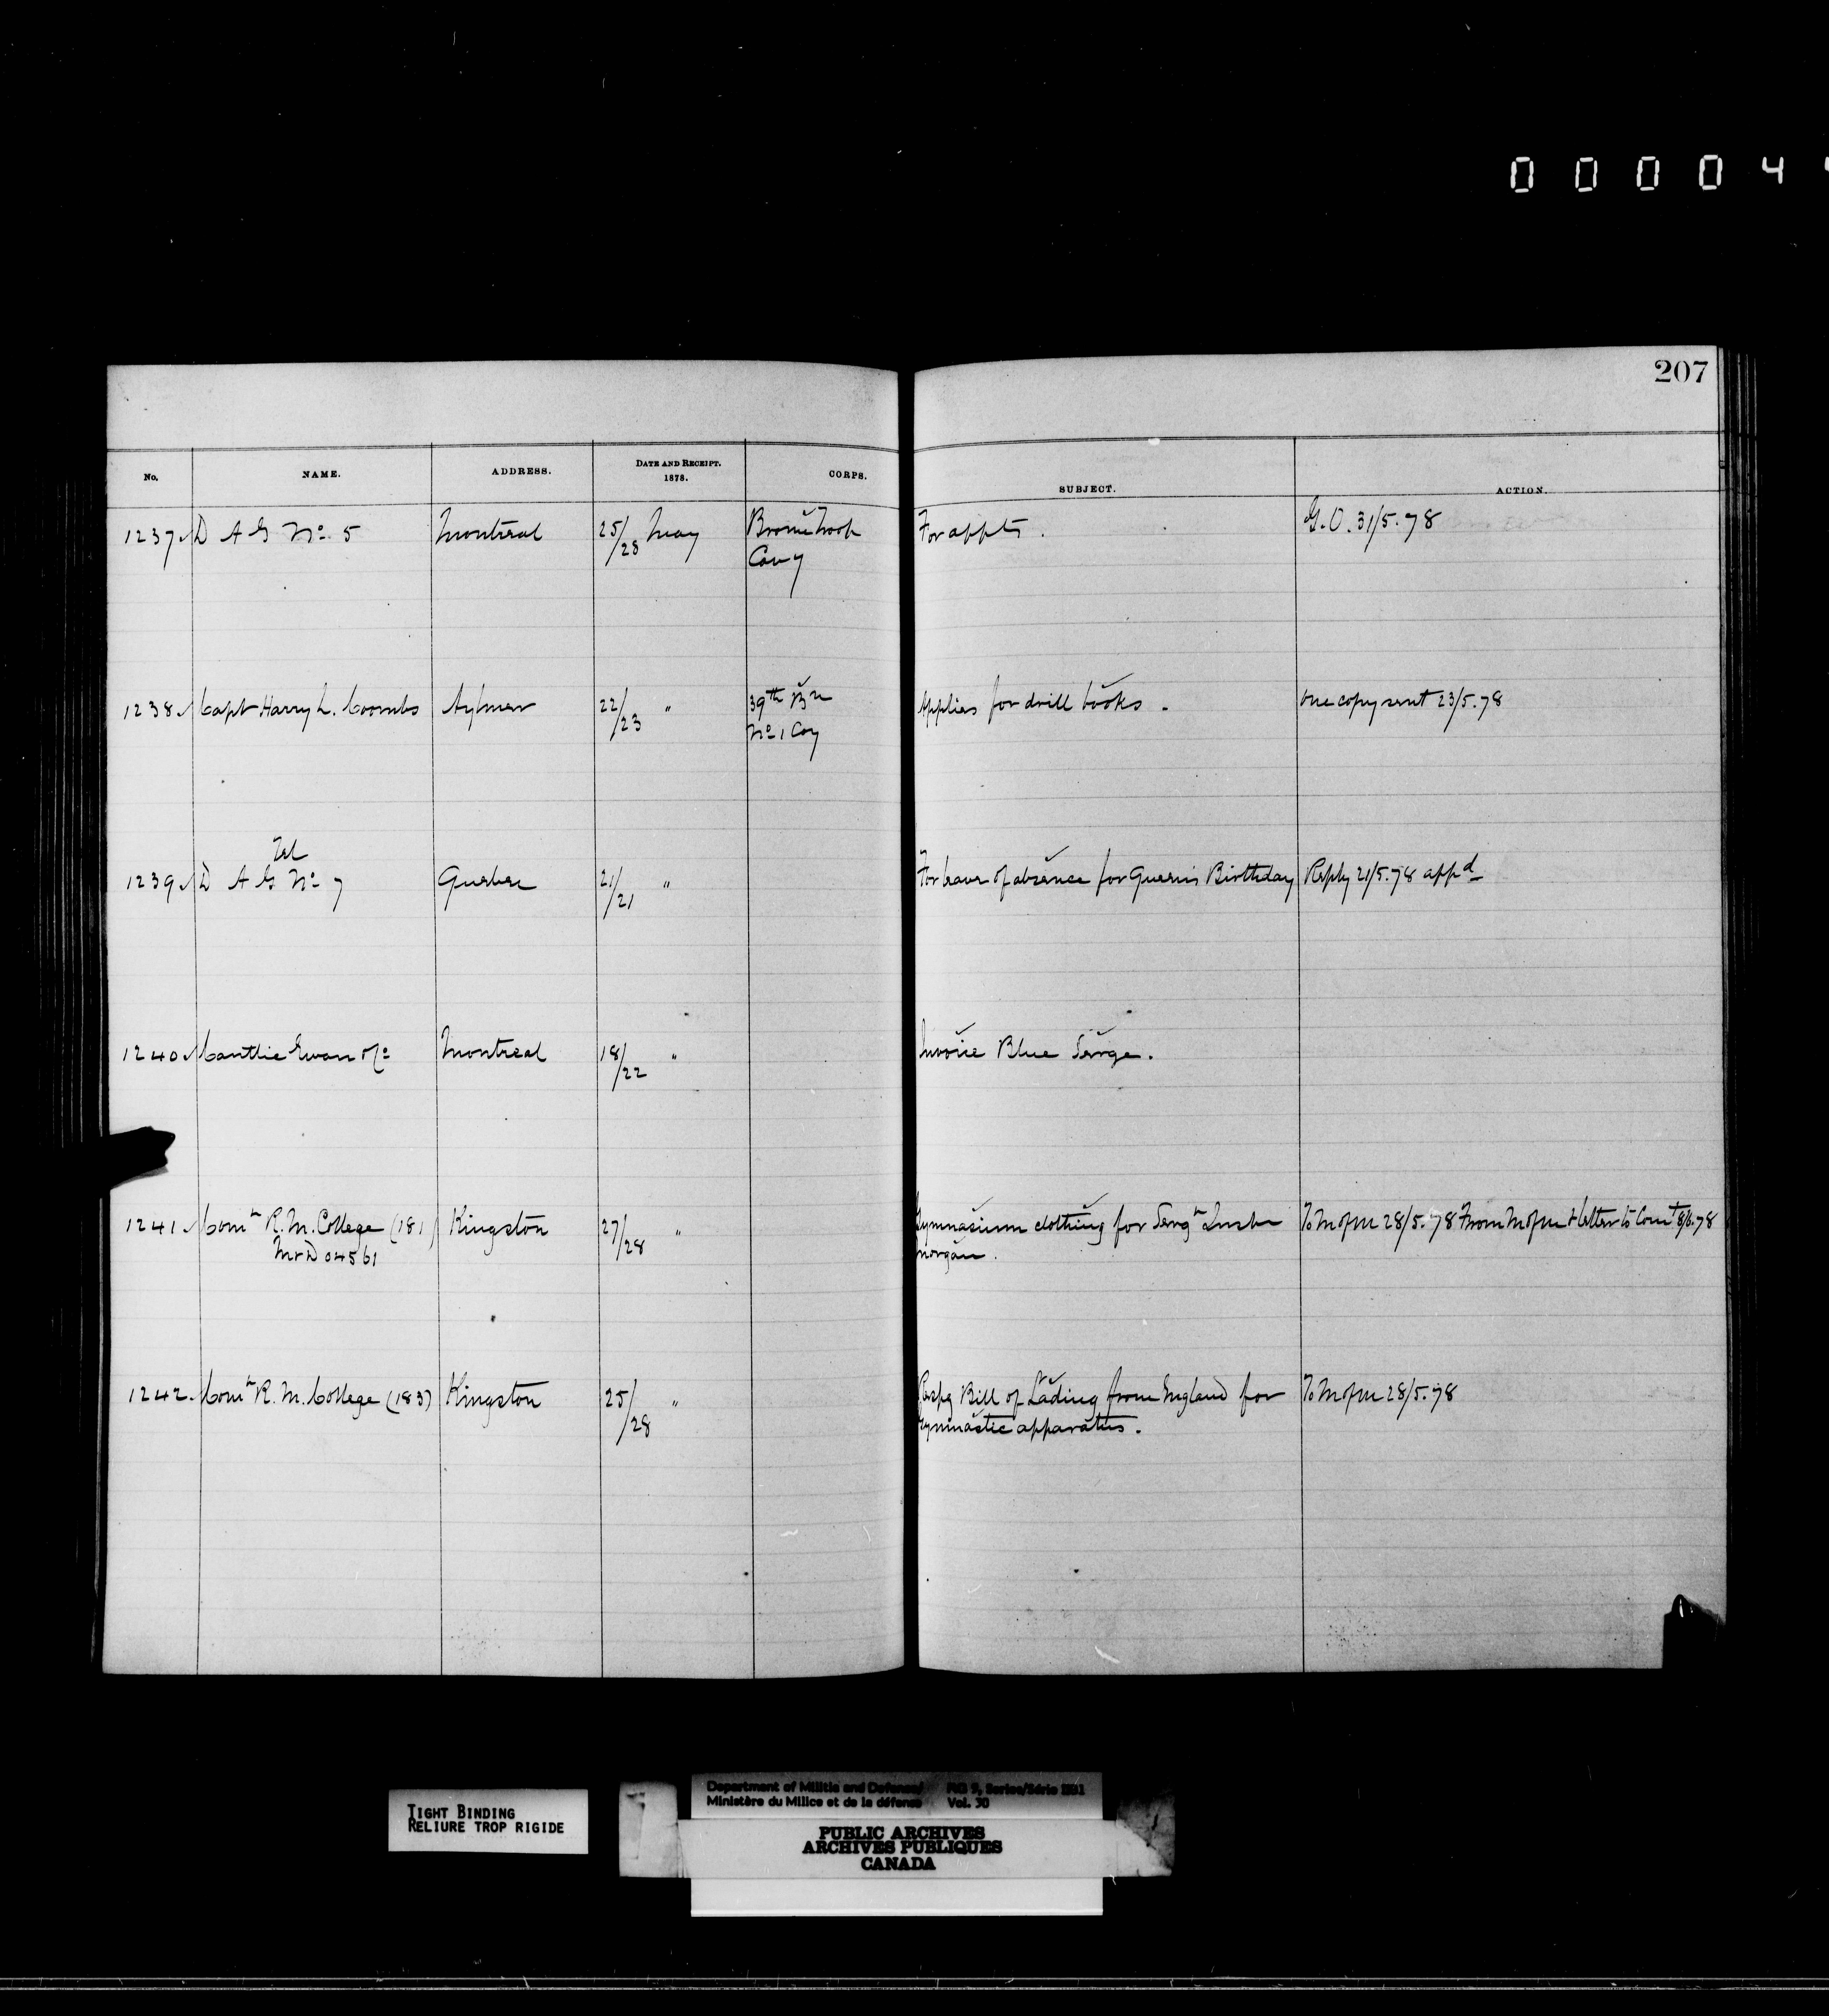 0 0 0 0 4
207
No. NAME. ADDRESS. DATE AND RECEIPT. 1878. CORPS. SUBJECT. ACTION.
1237 D A G No 5 Montreal 25/28 May Brome Troop For appts. G.O. 31/5.78
Cavy
1238 Capt Harry L. Coombs Aylmer 22/23 " 39th Bn Applies for drill books. One copy sent 23/5.78
No 1 Coy
Tel
1239 D A G No 7 Quebec 21/21 " For leave of absence for Queen's Birthday Reply 21/5.78 appd
1240 Cantlie Ewan Montreal 18/22 " Invoice Blue Serge.
1241 Comt R. M. College (181) Kingston 27/28 " Gymnasium clothing for Sergt Instr To M of M 28/5.78 From M of M & letter to Comt 8/6.78
M & D 04561 Morgan.
1242 Comt R. M. College (183) Kingston 25/28 " Respg Bill of Lading from England for To M of M 28/5.78
Gymnastic apparatus.
TIGHT BINDING
RELIURE TROP RIGIDE
Department of Militia and Defence/ RG 9, Series/Série IIB1
Ministère du Milice et de la défense Vol. 30
PUBLIC ARCHIVES
ARCHIVES PUBLIQUES
CANADA